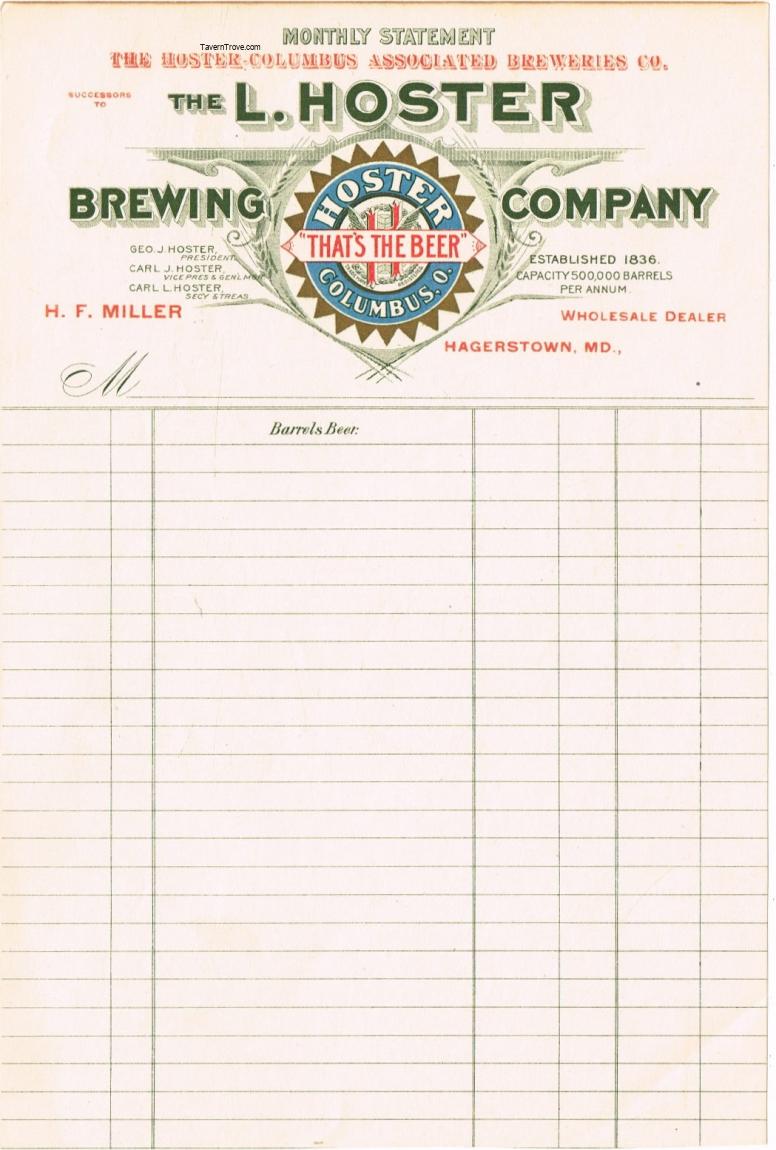 TavernTrove.com
MONTHLY STATEMENT
THE HOSTER-COLUMBUS ASSOCIATED BREWERIES CO.
SUCCESSORS
TO
THE L. HOSTER
BREWING COMPANY
HOSTER
"THAT'S THE BEER"
COLUMBUS, O.
GEO. J. HOSTER,
PRESIDENT.
CARL J. HOSTER,
VICE PRES & GEN'L MGR
CARL L. HOSTER,
SECY & TREAS
ESTABLISHED 1836.
CAPACITY 500,000 BARRELS
PER ANNUM.
H. F. MILLER
WHOLESALE DEALER
HAGERSTOWN, MD.,
M
Barrels Beer.